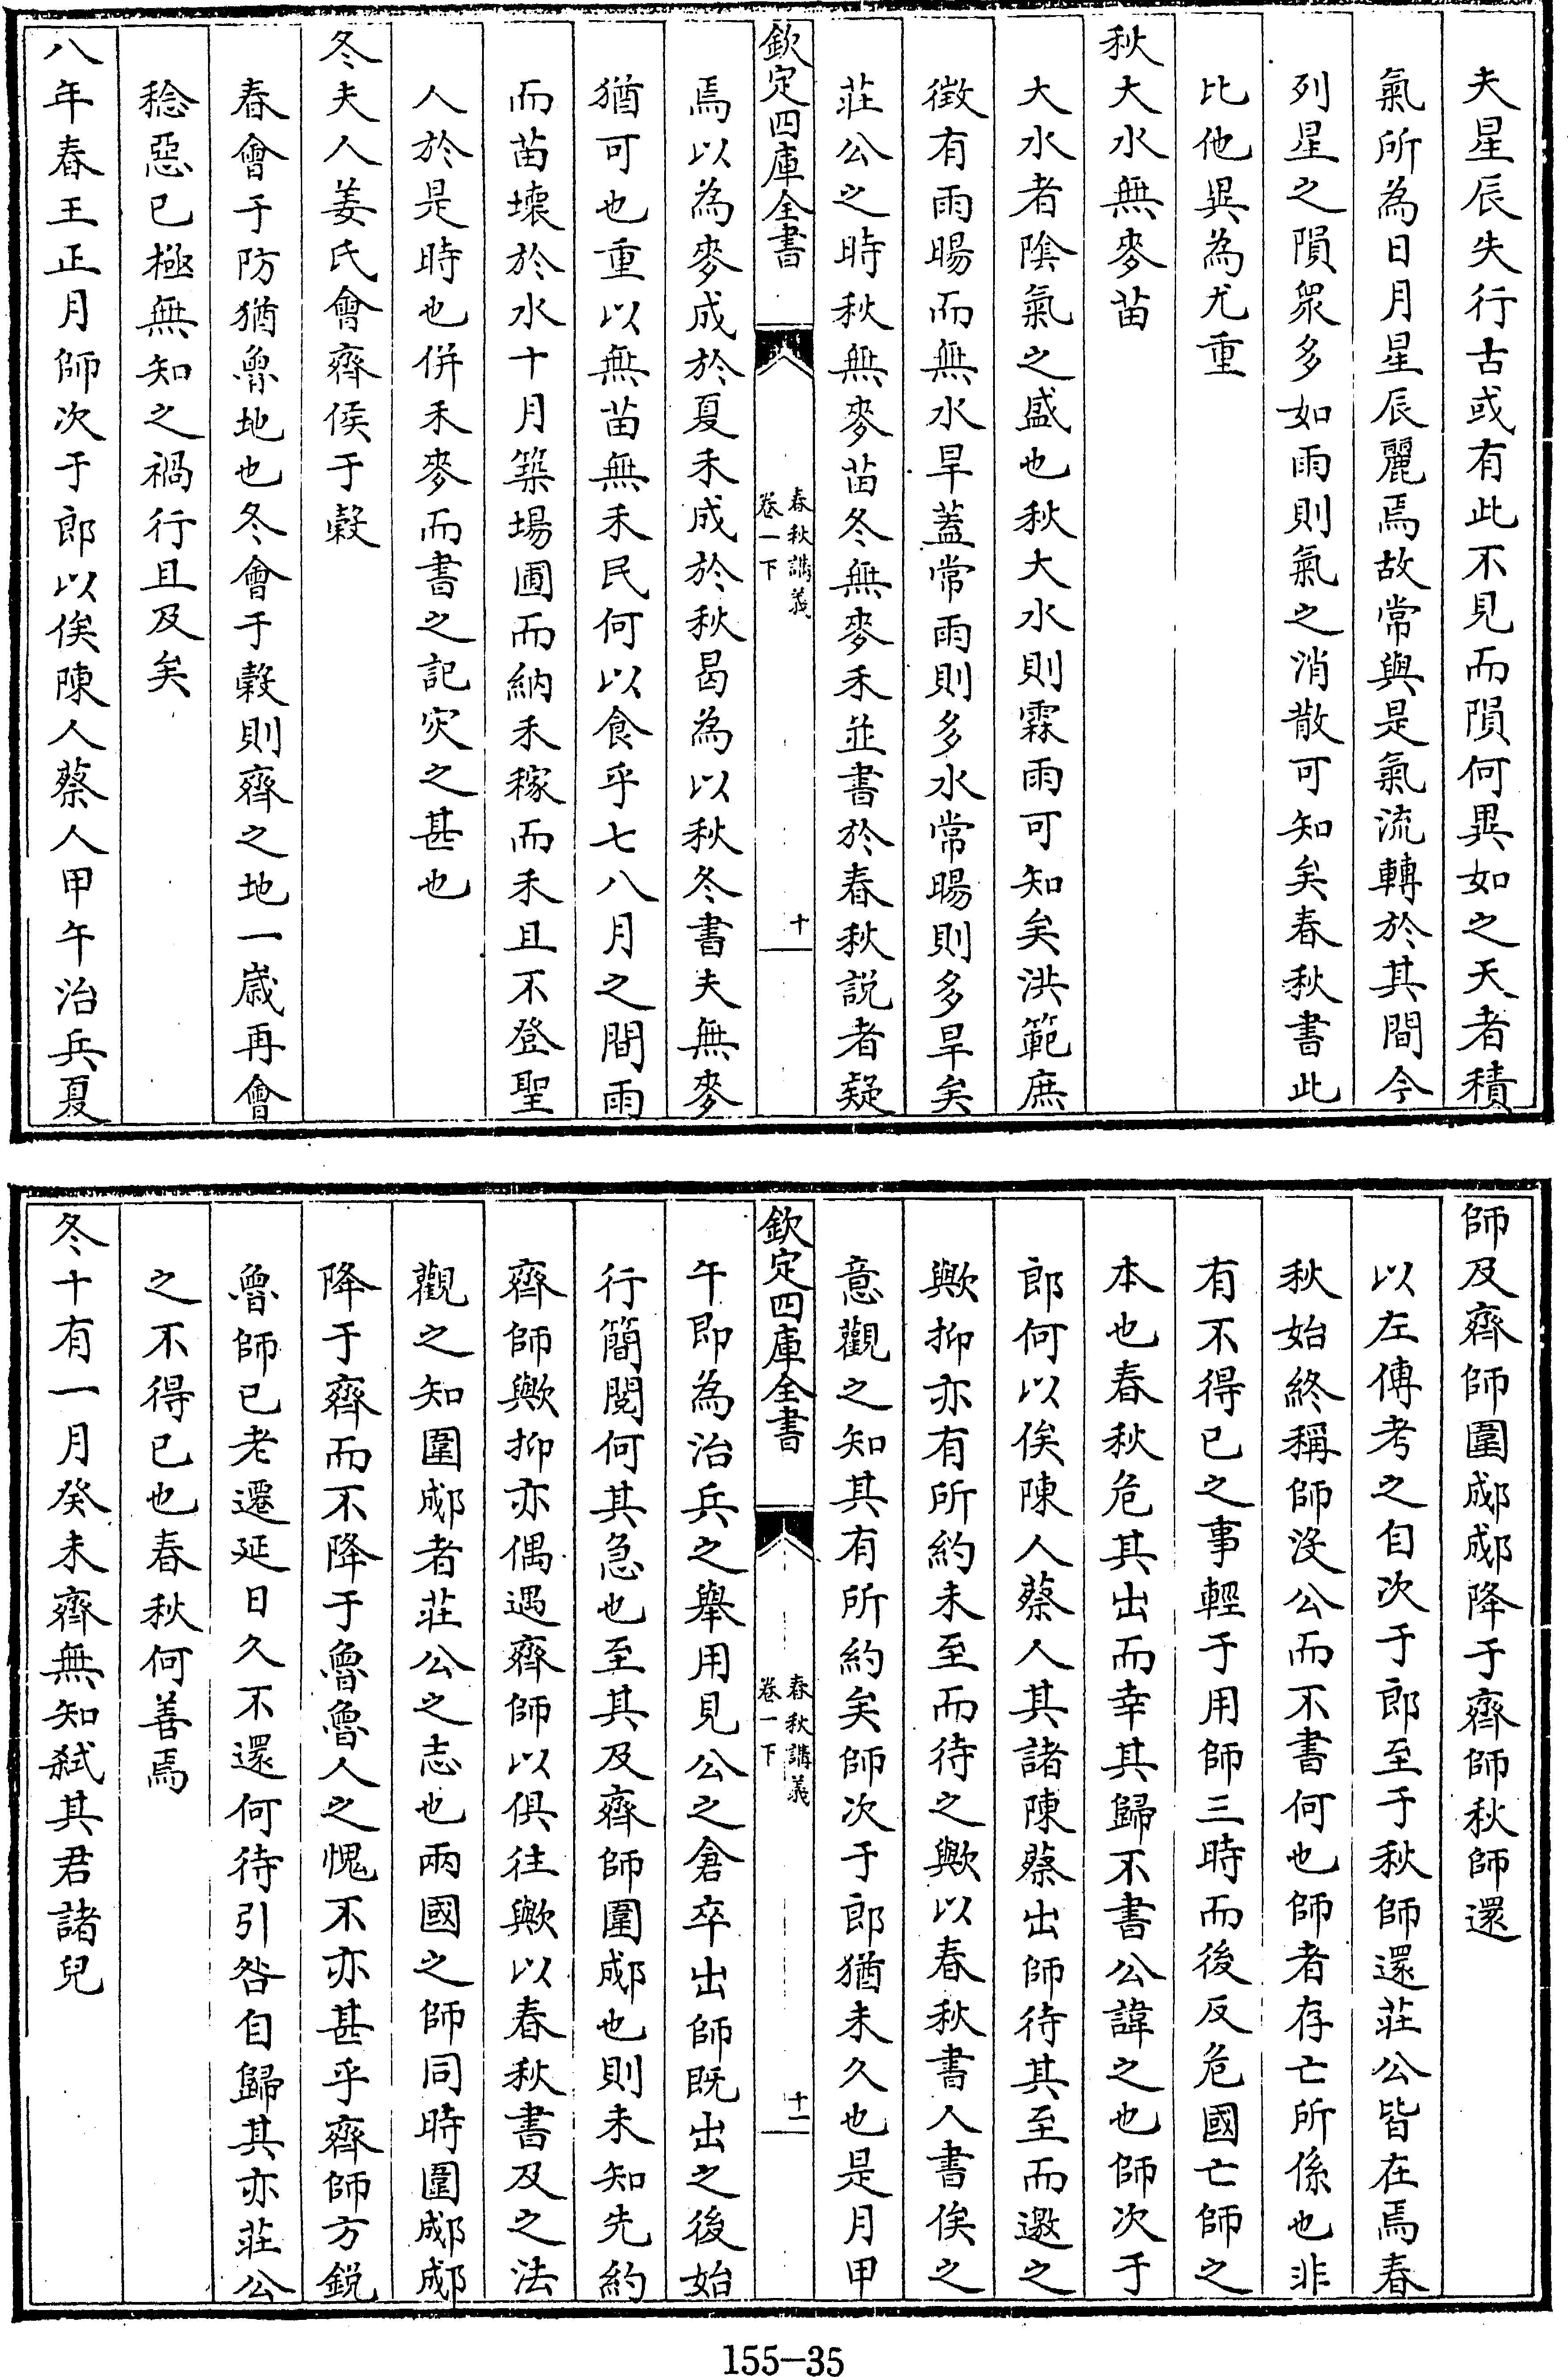 夫星辰失行古或有此不見而隕何異如之天者積
氣所為日月星辰麗焉故常與是氣流轉於其間今
列星之隕衆多如雨則氣之消散可知矣春秋書此
比他異為尤重
秋大水無麥苗
大水者陰氣之盛也秋大水則霖雨可知矣洪範庶
徴有雨暘而無水旱蓋常雨則多水常暘則多旱矣
莊公之時秋無麥苗冬無麥禾並書於春秋説者疑
欽定四庫全書
春秋講義
卷一下
十
焉以為麥成於夏禾成於秋曷為以秋冬書夫無麥
猶可也重以無苗無禾民何以食乎七八月之間雨
而苗壞於水十月築場圃而納禾稼而禾且不登聖
人於是時也併禾麥而書之記灾之甚也
冬夫人姜氏會齊侯于穀
春會于防猶魯地也冬會于穀則齊之地一嵗再會
稔惡已極無知之禍行且及矣
八年春王正月師次于郎以俟陳人蔡人甲午治兵夏
師及齊師圍郕郕降于齊師秋師還
以左傳考之自次于郎至于秋師還莊公皆在焉春
秋始終稱師沒公而不書何也師者存亡所係也非
有不得已之事輕于用師三時而後反危國亡師之
本也春秋危其出而幸其歸不書公諱之也師次于
郎何以俟陳人蔡人其諸陳蔡出師待其至而邀之
歟抑亦有所約未至而待之歟以春秋書人書俟之
意觀之知其有所約矣師次于郎猶未久也是月甲
欽定四庫全書
春秋講義
卷一下
十一
午即為治兵之舉用見公之倉卒出師既出之後始
行簡閱何其急也至其及齊師圍郕也則未知先約
齊師歟抑亦偶遇齊師以俱往歟以春秋書及之法
觀之知圍郕者莊公之志也兩國之師同時圍郕郕
降于齊而不降于魯魯人之愧不亦甚乎齊師方鋭
魯師已老遷延日久不還何待引咎自歸其亦莊公
之不得已也春秋何善焉
冬十有一月癸未齊無知弑其君諸兒
155-35